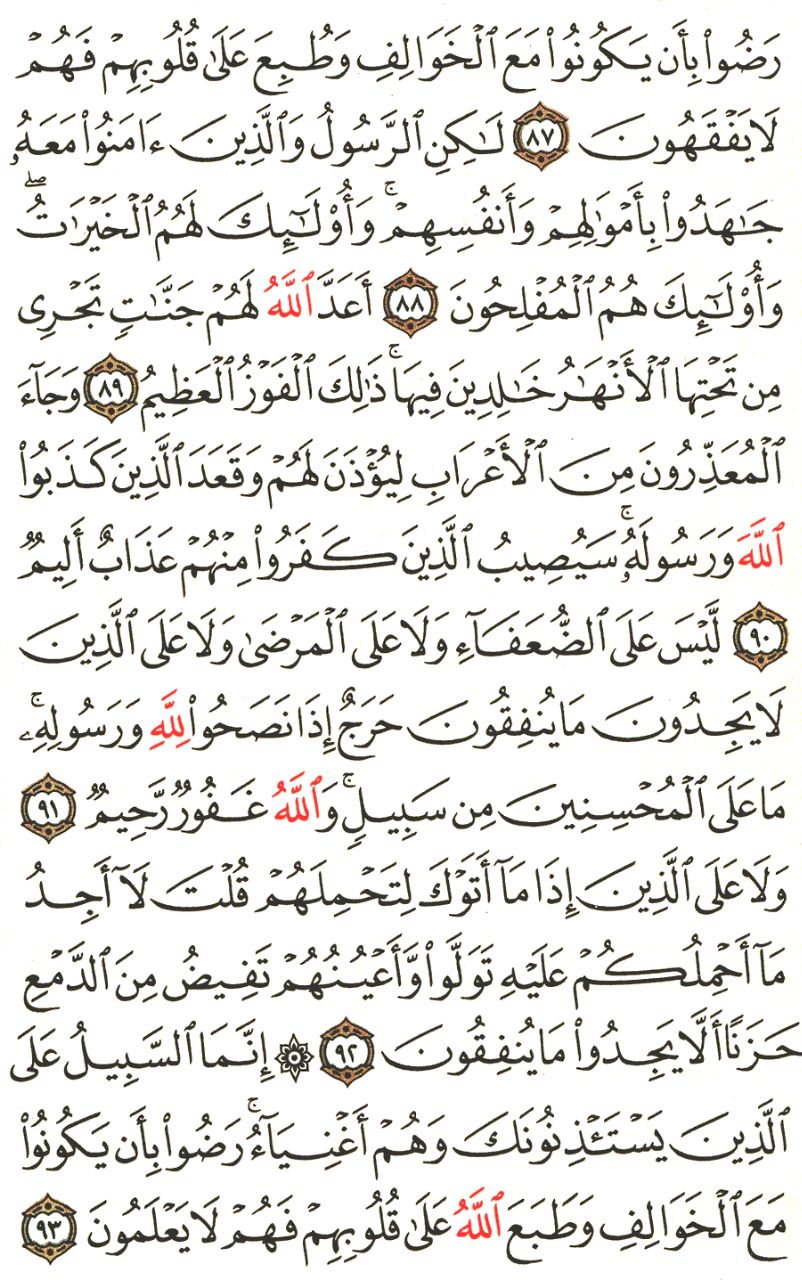 رَضُوا۟ بِأَن يَكُونُوا۟ مَعَ ٱلْخَوَالِفِ وَطُبِعَ عَلَىٰ قُلُوبِهِمْ فَهُمْ
لَا يَفْقَهُونَ ٨٧ لَـٰكِنِ ٱلرَّسُولُ وَٱلَّذِينَ ءَامَنُوا۟ مَعَهُۥ
جَـٰهَدُوا۟ بِأَمْوَٰلِهِمْ وَأَنفُسِهِمْ ۚ وَأُو۟لَـٰٓئِكَ لَهُمُ ٱلْخَيْرَٰتُ ۖ
وَأُو۟لَـٰٓئِكَ هُمُ ٱلْمُفْلِحُونَ ٨٨ أَعَدَّ ٱللَّهُ لَهُمْ جَنَّـٰتٍ تَجْرِى
مِن تَحْتِهَا ٱلْأَنْهَـٰرُ خَـٰلِدِينَ فِيهَا ۚ ذَٰلِكَ ٱلْفَوْزُ ٱلْعَظِيمُ ٨٩ وَجَآءَ
ٱلْمُعَذِّرُونَ مِنَ ٱلْأَعْرَابِ لِيُؤْذَنَ لَهُمْ وَقَعَدَ ٱلَّذِينَ كَذَبُوا۟
ٱللَّهَ وَرَسُولَهُۥ ۚ سَيُصِيبُ ٱلَّذِينَ كَفَرُوا۟ مِنْهُمْ عَذَابٌ أَلِيمٌ
٩٠ لَّيْسَ عَلَى ٱلضُّعَفَآءِ وَلَا عَلَى ٱلْمَرْضَىٰ وَلَا عَلَى ٱلَّذِينَ
لَا يَجِدُونَ مَا يُنفِقُونَ حَرَجٌ إِذَا نَصَحُوا۟ لِلَّهِ وَرَسُولِهِۦ ۚ
مَا عَلَى ٱلْمُحْسِنِينَ مِن سَبِيلٍ ۚ وَٱللَّهُ غَفُورٌ رَّحِيمٌ ٩١
وَلَا عَلَى ٱلَّذِينَ إِذَا مَآ أَتَوْكَ لِتَحْمِلَهُمْ قُلْتَ لَآ أَجِدُ
مَآ أَحْمِلُكُمْ عَلَيْهِ تَوَلَّوا۟ وَّأَعْيُنُهُمْ تَفِيضُ مِنَ ٱلدَّمْعِ
حَزَنًا أَلَّا يَجِدُوا۟ مَا يُنفِقُونَ ٩٢ ۞ إِنَّمَا ٱلسَّبِيلُ عَلَى
ٱلَّذِينَ يَسْتَـْٔذِنُونَكَ وَهُمْ أَغْنِيَآءُ ۚ رَضُوا۟ بِأَن يَكُونُوا۟
مَعَ ٱلْخَوَالِفِ وَطَبَعَ ٱللَّهُ عَلَىٰ قُلُوبِهِمْ فَهُمْ لَا يَعْلَمُونَ ٩٣